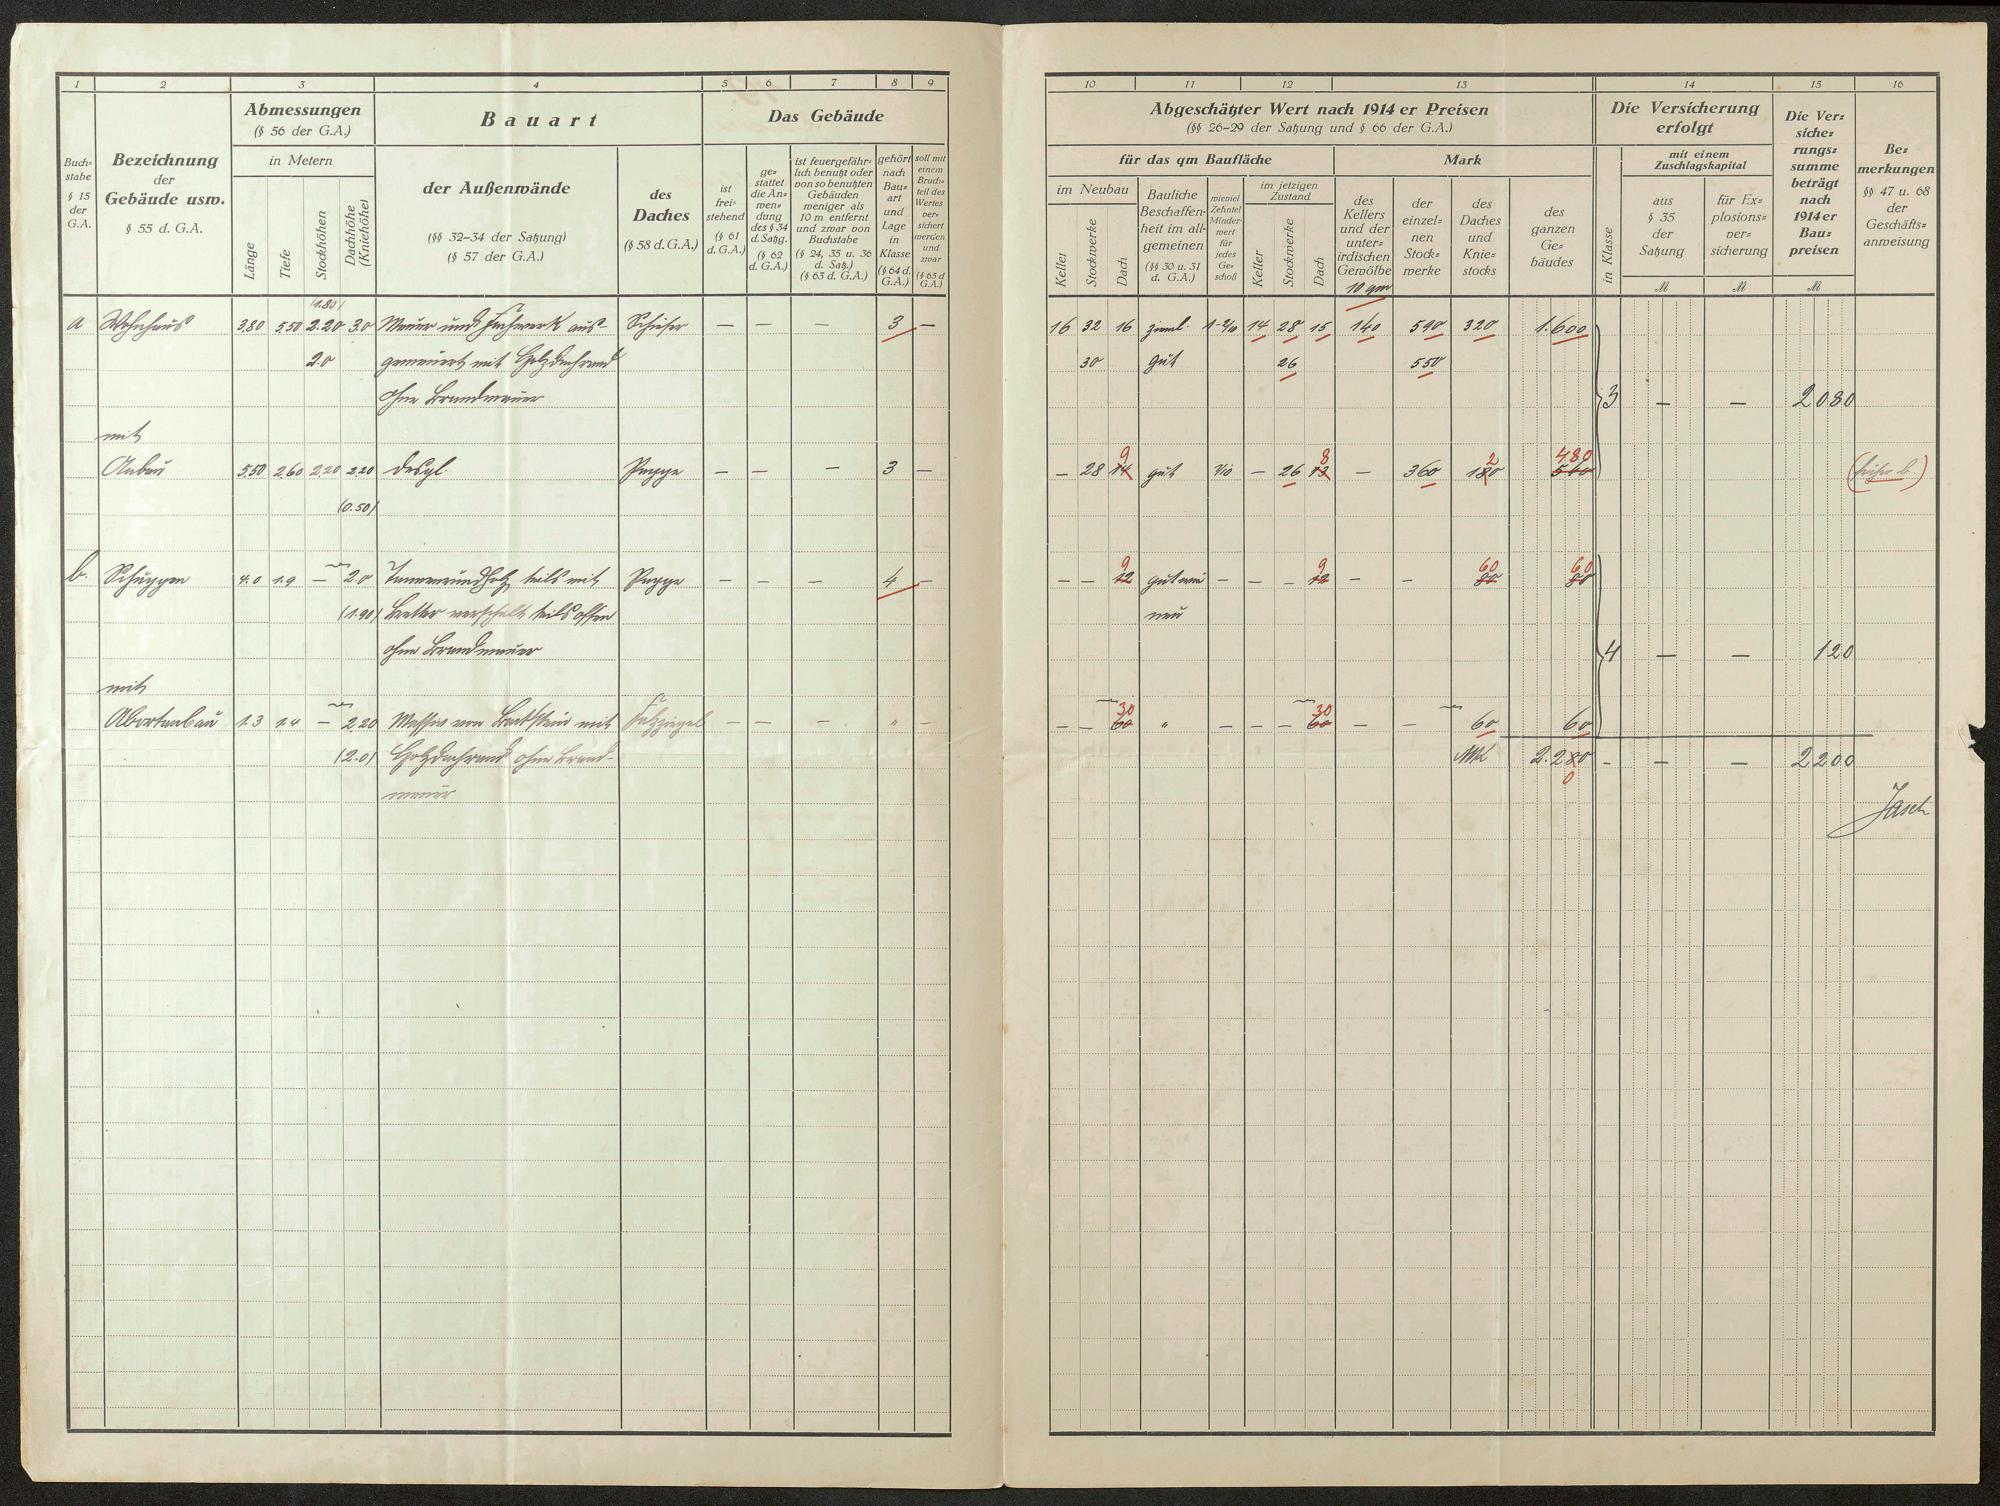 1 2 3 4 5 6 7 8 9
Abmessungen
(§ 56 der G.A.)
in Metern
Bauart
Das Gebäude
Buch=
stabe
§ 15
der
G.A.
Bezeichnung
der
Gebäude usw.
§ 55 d. G.A.
Länge
Tiefe
Stockhöhen
Dachhöhe
(Kniehöhe)
der Außenwände
(§§ 32–34 der Satzung)
(§ 57 der G.A.)
des
Daches
(§ 58 d. G.A.)
ist
frei=
stehend
(§ 61
d. G.A.)
ge=
stattet
die An=
wen=
dung
des § 34
d. Satzg.
(§ 62
d. G.A.)
ist feuergefähr=
lich benutzt oder
von so benutzten
Gebäuden
weniger als
10 m entfernt
und zwar von
Buchstabe
(§ 24, 35 u. 36
d. Satz.)
(§ 63 d. G.A.)
gehört
nach
Bau=
art
und
Lage
in
Klasse
(§ 64 d.
G.A.)
soll mit
einem
Bruch=
teil des
Wertes
ver=
sichert
werden
und
zwar
(§ 65 d
G.A.)
(1.80)
a Wohnhaus 3.80 5.50 2.20 3.0 Mauer und Fachwerk aus- Schiefer — — — 3 —
2.0 gemauert mit Holzdachrand
ohne Brandmauer
mit
Anbau 5.50 2.60 2.20 2.20 desgl. Pappe — — — 3 —
(0.50)
b. Schuppen 4.0 1.9 — 2.0 Tannenrundholz teils mit Pappe — — — 4 —
(1.90) Bretter verschalt teils offen
ohne Brandmauer
mit
Abortanbau 1.3 1.4 — 2.20 Massiv von Backstein mit Falzziegel — — — " —
(2.0) Holzdachrand ohne Brand-
mauer
10 11 12 13 14 15 16
Abgeschätzter Wert nach 1914er Preisen
(§§ 26–29 der Satzung und § 66 der G.A.)
für das qm Baufläche
Mark
im Neubau
Keller
Stockwerke
Dach
Bauliche
Beschaffen=
heit im all=
gemeinen
(§§ 30 u. 31
d. G.A.)
wieviel
Zehntel
Minder=
wert
für
jedes
Ge=
schoß
im jetzigen
Zustand
Keller
Stockwerke
Dach
des
Kellers
und der
unter=
irdischen
Gewölbe
10 qm
der
einzel=
nen
Stock=
werke
des
Daches
und
Knie=
stocks
des
ganzen
Ge=
bäudes
Die Versicherung
erfolgt
in Klasse
mit einem
Zuschlagskapital
aus
§ 35
der
Satzung
für Ex=
plosions=
ver=
sicherung
Die Ver=
siche=
rungs=
summe
beträgt
nach
1914er
Bau=
preisen
Be=
merkungen
§§ 47 u. 68
der
Geschäfts=
anweisung
M M M
16 32 16 zieml. 1-2/10 14 28 15 140 590 320 1.600
30 gut 26 550
3 — — 2080
9 8 2 480
— 28 14 gut 1/10 — 26 13 — 360 180 540 (früher b.)
9 9 60 60
— — 12 gut wie — — — 12 — — 80 80
neu
4 — — 120
30 30
— — 60 " — — — 60 — — 60 60
Mk 2.280 - — — 2200
0
Jasch